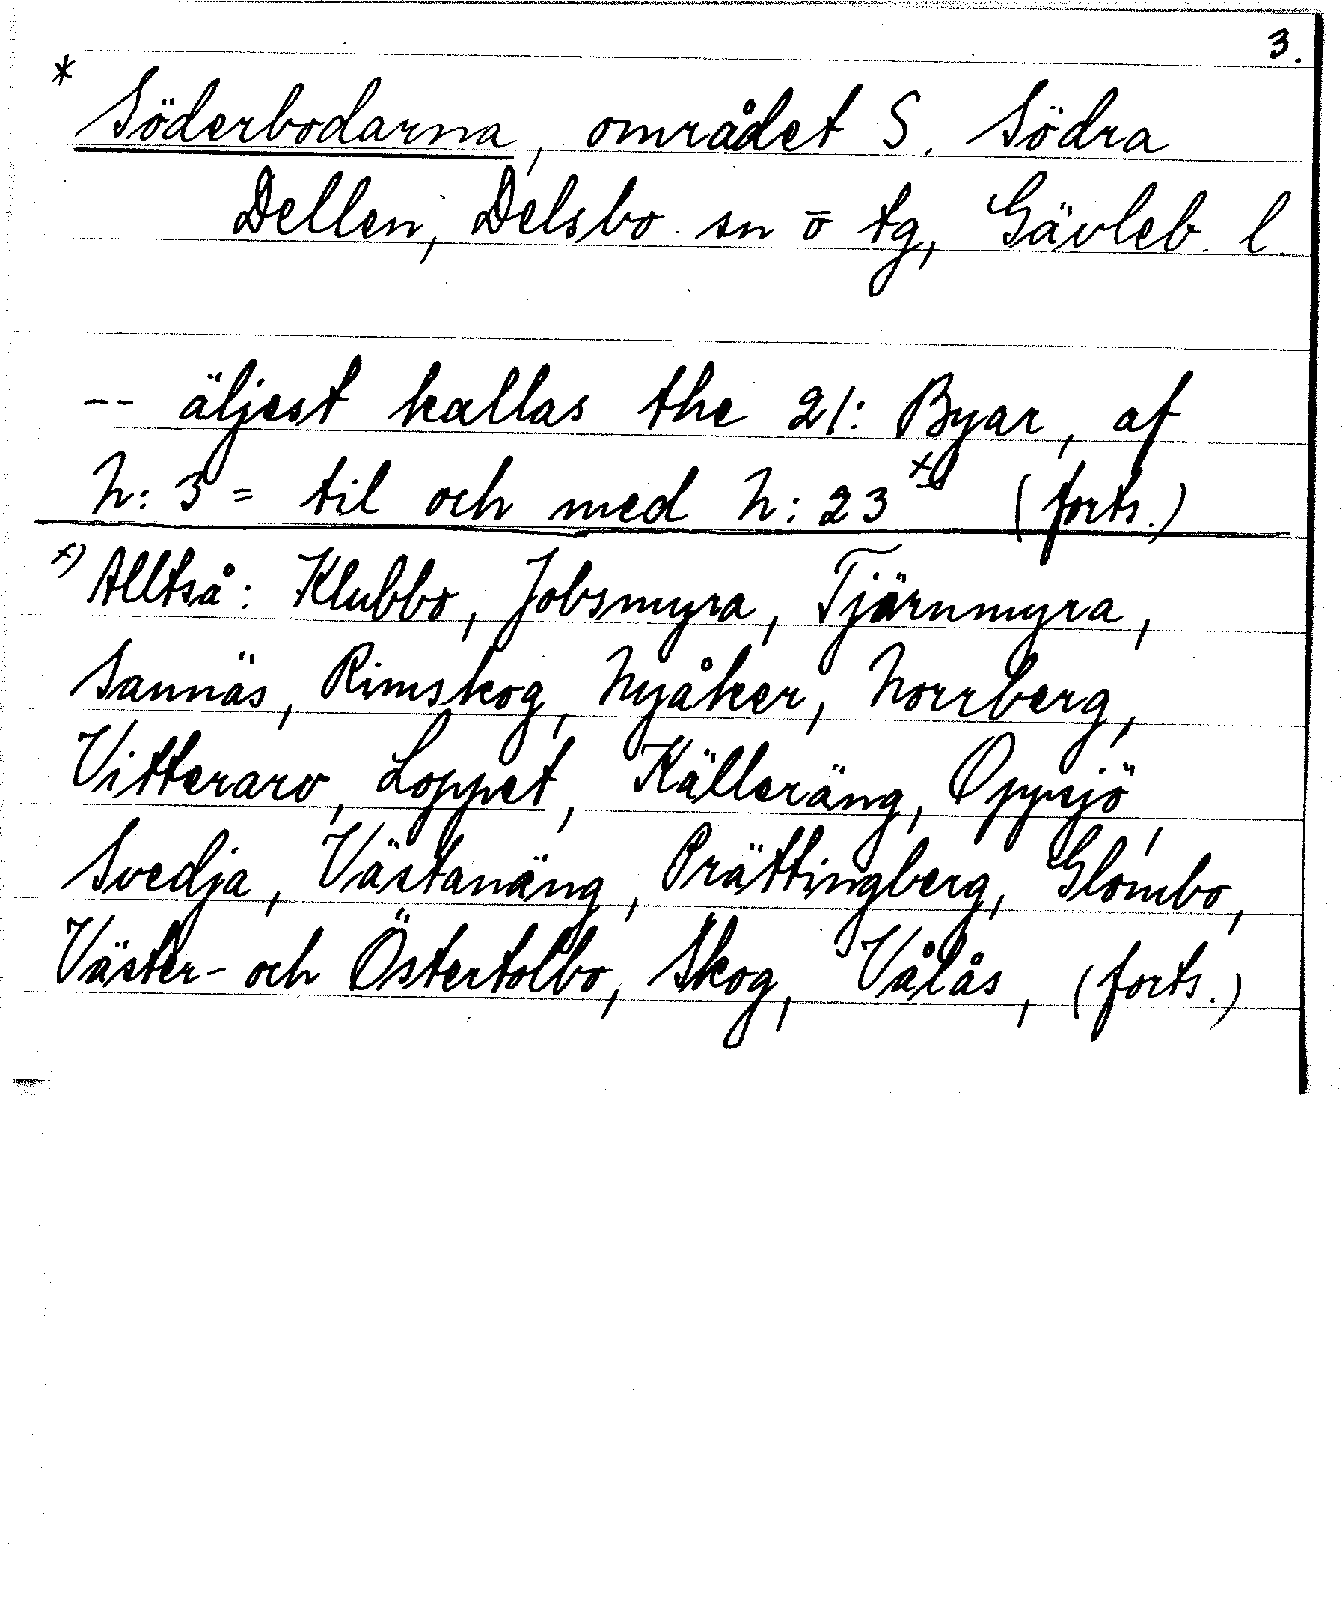 3.
* Söderbodarna, området S. Södra
Dellen, Delsbo sn o tg, Gävleb. l.
-- äljest kallas the 21: Byar, af
N: 3 = til och med N: 23 x) (forts.)
x) Alltså: Klubbo, Jobsmyra, Tjärnmyra,
Sannäs, Rimskog, Nyåker, Norrberg,
Vitterarv, Loppet, Källeräng, Oppsjö,
Svedja, Västanäng, Prättingberg, Glombo,
Väster- och Östertolbo, Skog, Vålås, (forts.)